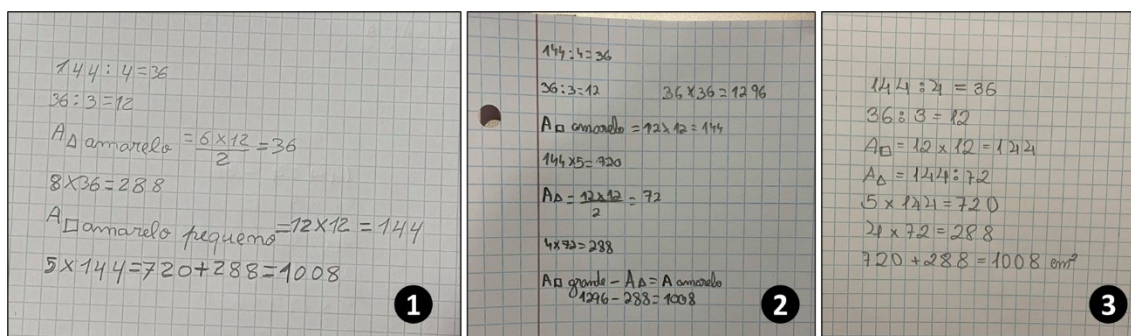 144 : 4 = 36
36 : 3 = 12
A△ amarelo = 6 x 12 / 2 = 36
8 x 36 = 288
A□ amarelo pequeno = 12 x 12 = 144
5 x 144 = 720 + 288 = 1008
1
144 : 4 = 36
36 : 3 = 12 36 x 36 = 1296
A□ amarelo = 12 x 12 = 144
144 x 5 = 720
A△ = 12 x 12 / 2 = 72
4 x 72 = 288
A□ grande - A△ = A amarelo
1296 - 288 = 1008
2
144 : 4 = 36
36 : 3 = 12
A□ = 12 x 12 = 144
A△ = 144 : 72
5 x 144 = 720
4 x 72 = 288
720 + 288 = 1008 cm²
3